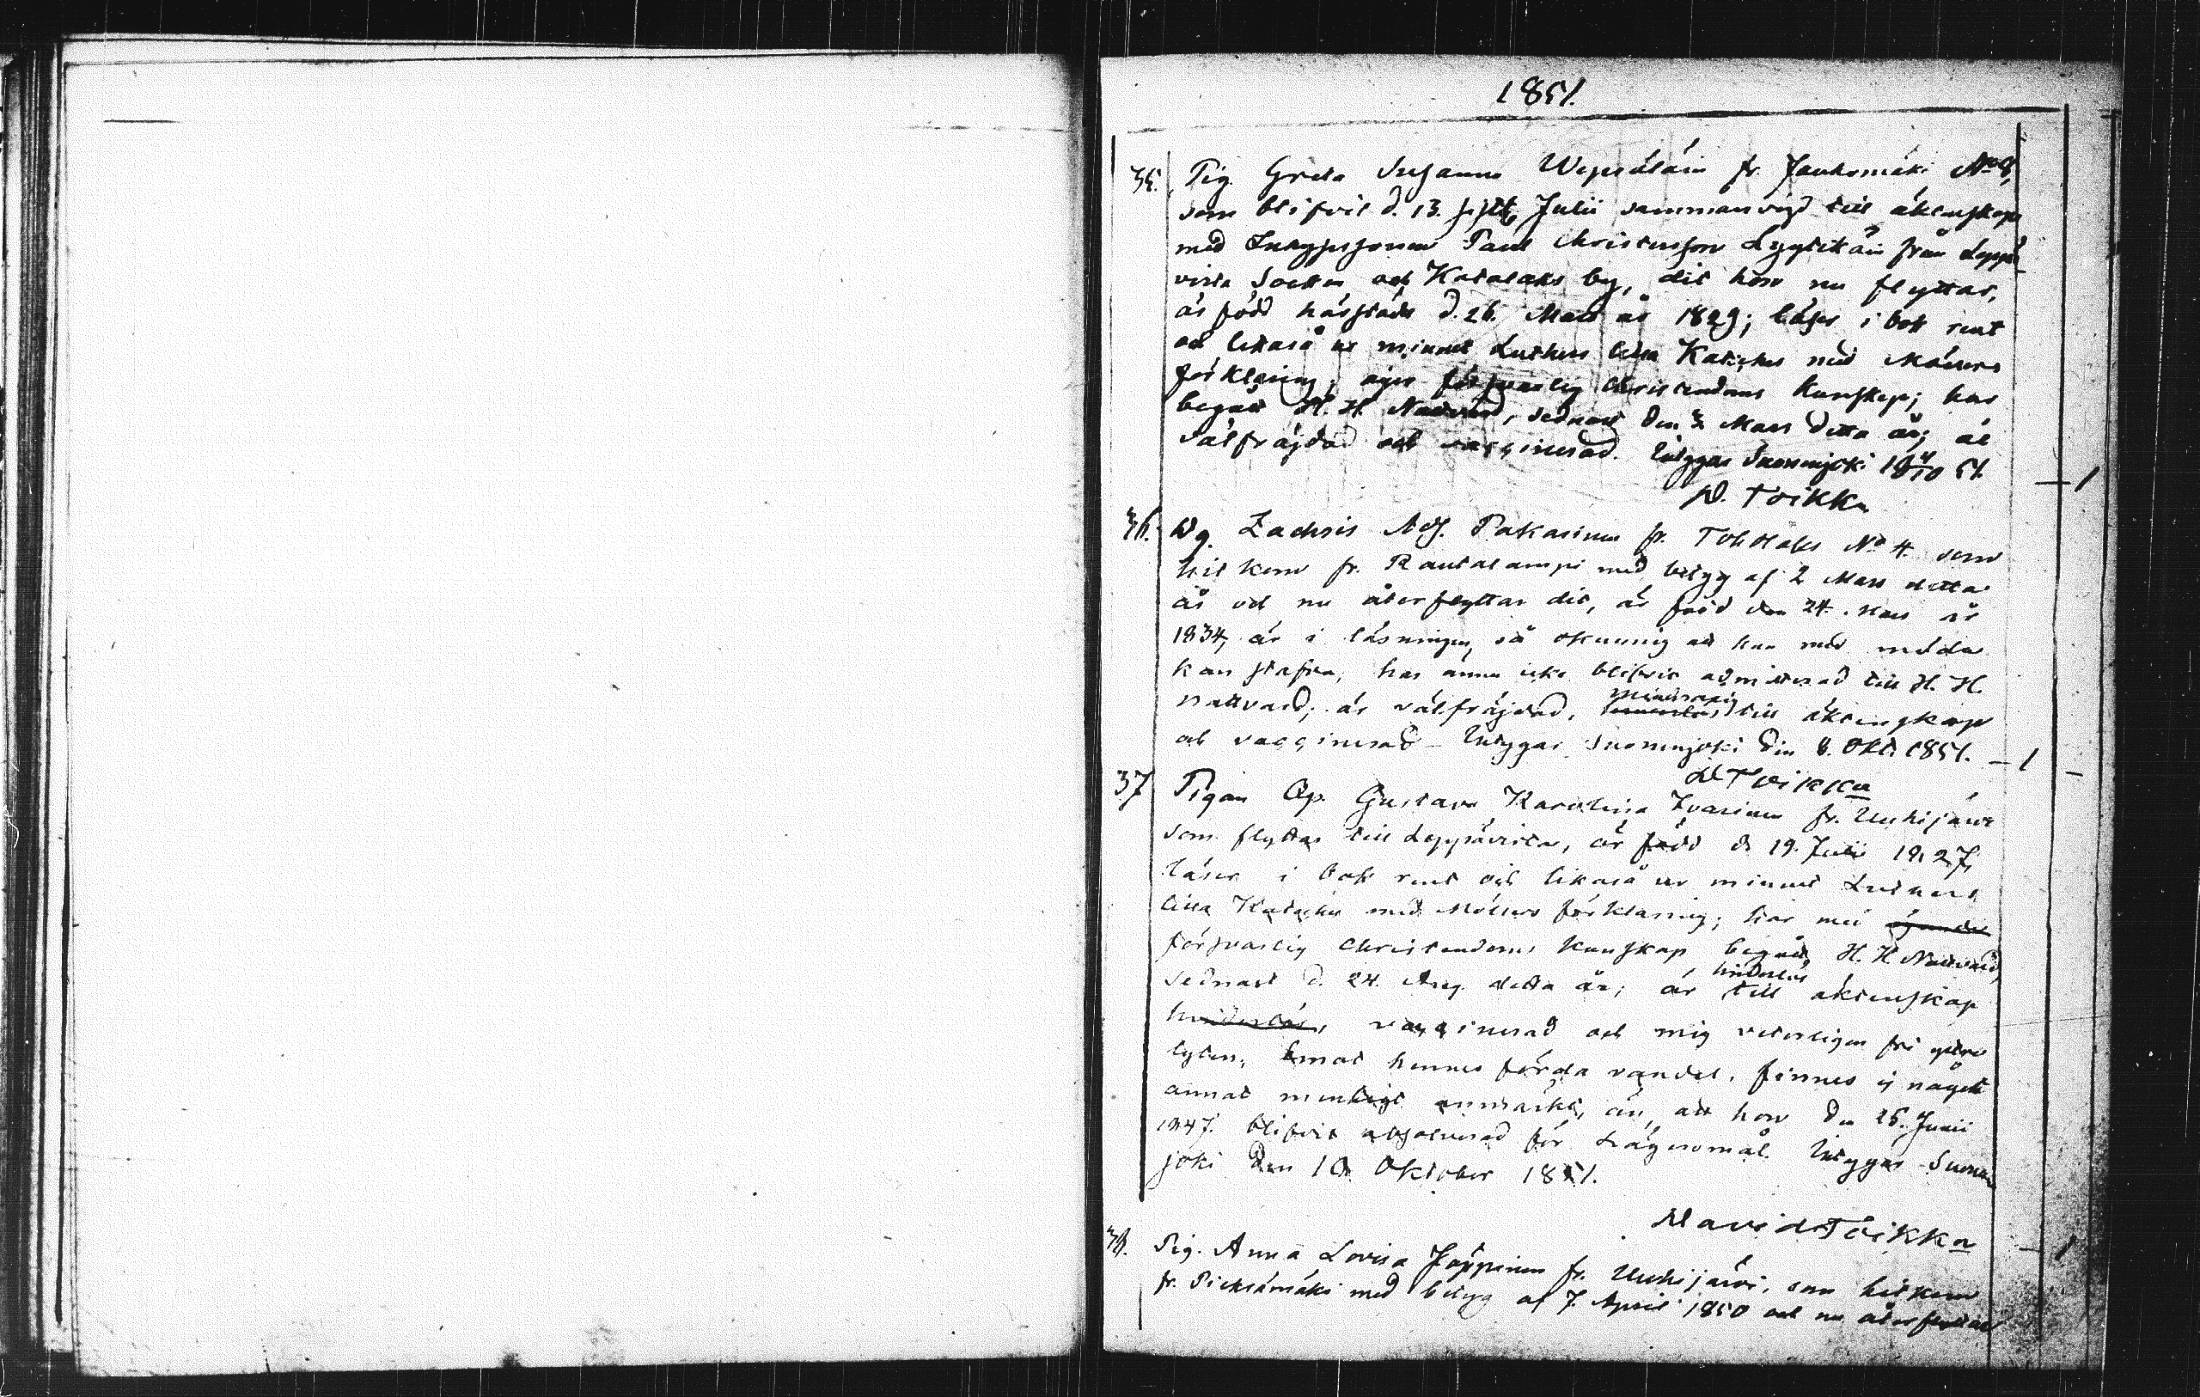 1851.
35. Pig. Greta Susanna Wepsäläin fr. Jauhomäki No 8,
som blifvit d. 13. sistl. Julii sammanvigd till äktenskap
med Inhyses sonen Paul Christersson Lyytikäin från Leppä-
virta Socken och Kotalaks by, dit hon nu flyttar,
är född härstädes d. 26. Mars år 1829; läser i bok rent
och likaså ur minnet Luthers lilla Kateches med Möllers
förklaring; äger försvarlig christendoms kunskap; har
begått H. H. Nattvard, sednast den Mars detta år; är
välfräjdad och vaccinerad. Intygar Suonenjoki 18 4/10 51.
D. Toikka
36. Dg. Zachris Adf. Pakarinen fr. Toholaks No 4. som
hit kom fr. Rautalampi med betyg af 2 Mars detta
år och nu återflyttar dit, är född den 24. Mars år
1834, är i läsningen så okunnig att han med möda
kan stafva, har ännu icke blifvit admitterad till H. H.
nattvard; är välfräjdad, till äktenskap
och vaccinerad – Intygar Suonenjoki den 8. Okt. 1851. – 1
D Toikka
37 Pigan Gustava Karolina Ivarinen fr. Uuhijärvi
som flyttar till Leppävirta, är född d. 19. Julii 1827,
läser i bok rent och likaså ur minnet Luthers
lilla Kateches med Möllers förklaring; har med ägande
försvarlig christendoms kunskap begått H. H. Nattvard,
hinderlös
sednast d. 24. Aug. detta år; är till äktenskap
hinderlös, vaccinerad och mig veterligen fri yttre
lyten. Emot hennes förda vandel finnes ej något
annat menligt anmärkt, än att hon den 25. Junii
1847. blifvit absolverad för lägersmål. Intygar Suonen
joki den 10 Oktober 1851.
David Toikka
38. Pig. Anna Lovisa Jäppinen fr. Uuhijärvi, som hitkom
fr. Pieksämäki med betyg af 7. April 1850 och nu återflyttar